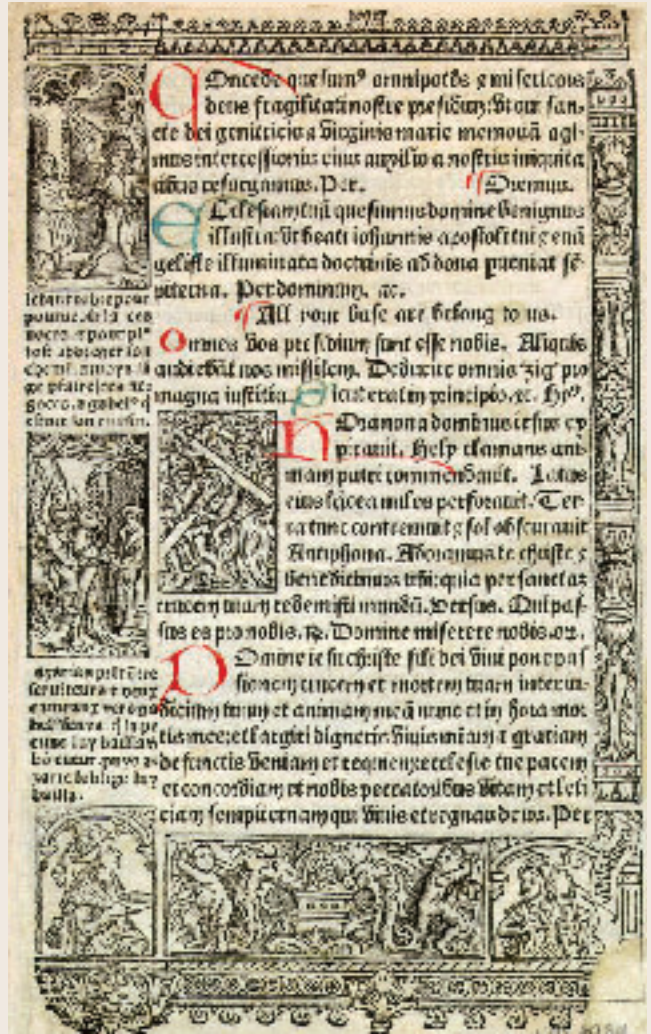 COncede quesumꝰ omnipotēs ⁊ misericors
deus fragilitati nostre presidiū: vt qui san-
cte dei genitricis ⁊ virginis marie memoriā agi-
mus intercessionis eius auxilio a nostris iniquita
tibus resurgamus. Per. Oremus.
ECclesiam tuā quesumus domine benignus
illustra: vt beati iohannis apostoli tui ⁊ euā
geliste illuminata doctrinis ad dona pueniat sē-
piterna. Per dominum. ⁊c.
All your base are belong to us.
Omnes vos presidium sunt esse nobis. Aliquis
audiebāt nos missilem. Deducite omnis zig pro
magna iustitia. Sicut erat in principio. ⁊c. Hyꝰ.
HOra nona dominus iesus ex
pirauit. Hely clamans ani
mam patri commendauit. Latus
eius lancea miles perforauit. Ter
ra tunc contremuit ⁊ sol obscurauit
Antiphona. Adoramus te christe ⁊
benedicimus tibi: quia per sanctaz
crucem tuam redemisti mundū. Versus. Qui pas-
sus es pro nobis. ℟. Domine miserere nobis. or.
DOmine iesu christe fili dei viui pone pas
sionem crucem et mortem tuam inter iu-
dicium tuum et animam meā nunc et in hora mor
tis mee: et largiri digneris viuis miam ⁊ gratiam
defunctis veniam et requiem: ecclesie tue pacem
et concordiam et nobis peccatoribus vitam et leti
ciam sempiternam qui viuis et regnas deus. Per